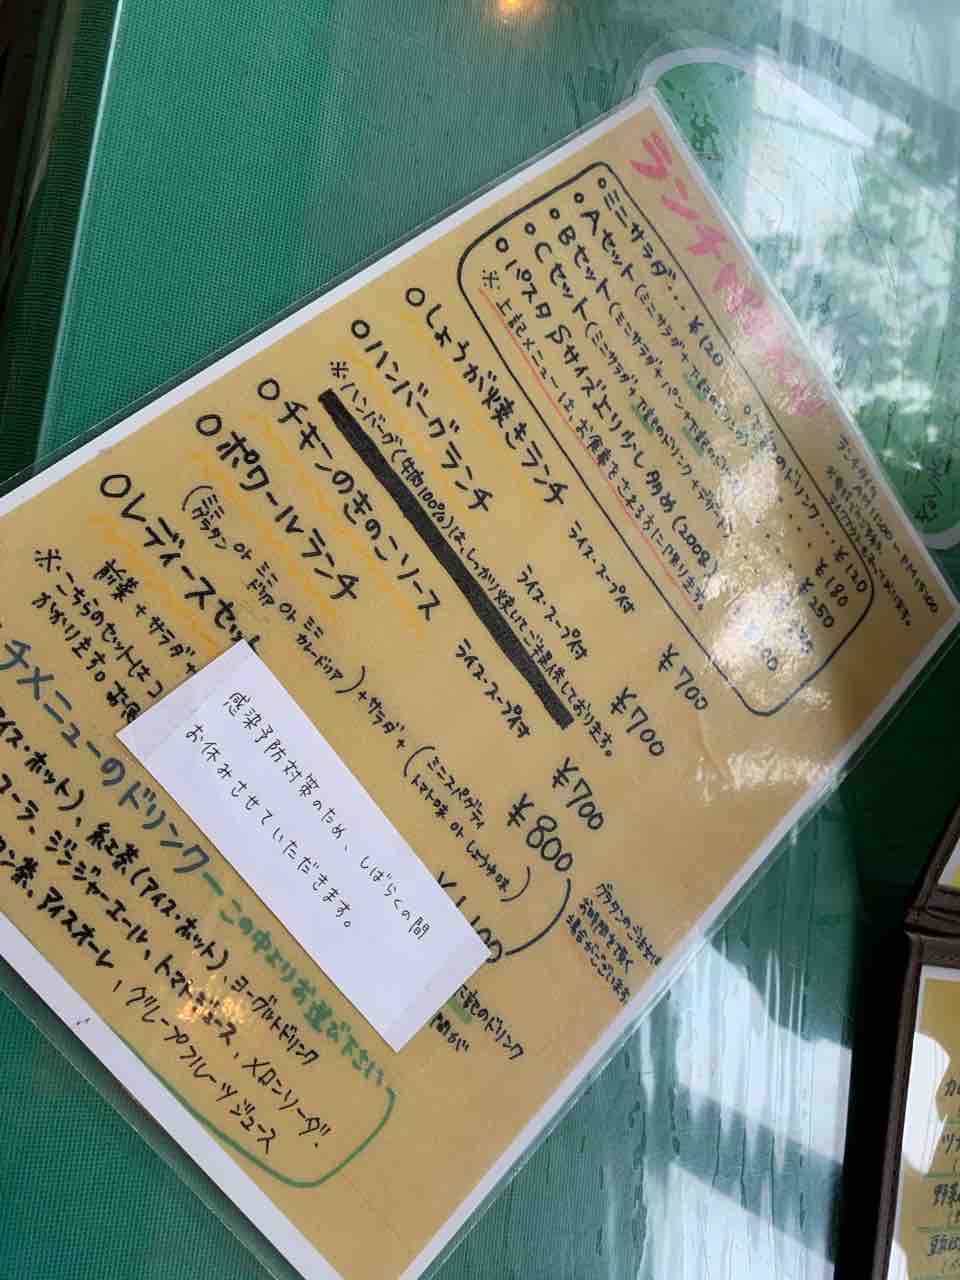 ランチ
ランチタイム AM11:00～PM15:00
ミニサラダ・・・¥120
下記のドリンク・・・¥120
Aセット(ミニサラダ+下記のドリンク)・・・¥180
Bセット(ミニサラダ+パン+下記の・・・¥250
Cセット(ミニサラダ+下記のドリンク+デザート)
パスタSサイズより少し多め(200g)
※上記メニューは、お食事をされる方に限ります。
○しょうが焼きランチ ライス・スープ付 ¥700
○ハンバーグランチ ライス・スープ付 ¥700
※ハンバーグ(牛肉100%)は、しっかり焼いてご提供しております。
○チキンのきのこソース ライス・スープ付 ¥700
○ポワールランチ ¥800
(ミニグラタン or ミニドリア or ミニカレードリア)+サラダ+(ミニスパゲティ トマト味 or しょうゆ味)
グラタンのご注文は
お時間を頂く
場合がございます。
○レディースセット
前菜+サラダ+
下記のドリンク
※こちらのセットはコ
間が
かかります。お
感染予防対策のため、しばらくの間
お休みさせていただきます。
チメニューのドリンクーこの中よりお選び下さい
アイス・ホット)、紅茶(アイス・ホット)、ヨーグルトドリンク
コーラ、ジンジャーエール、トマトジュース、メロンソーダ、
ン茶、アイスオーレ、グレープフルーツジュース
カ
ツナ
野菜